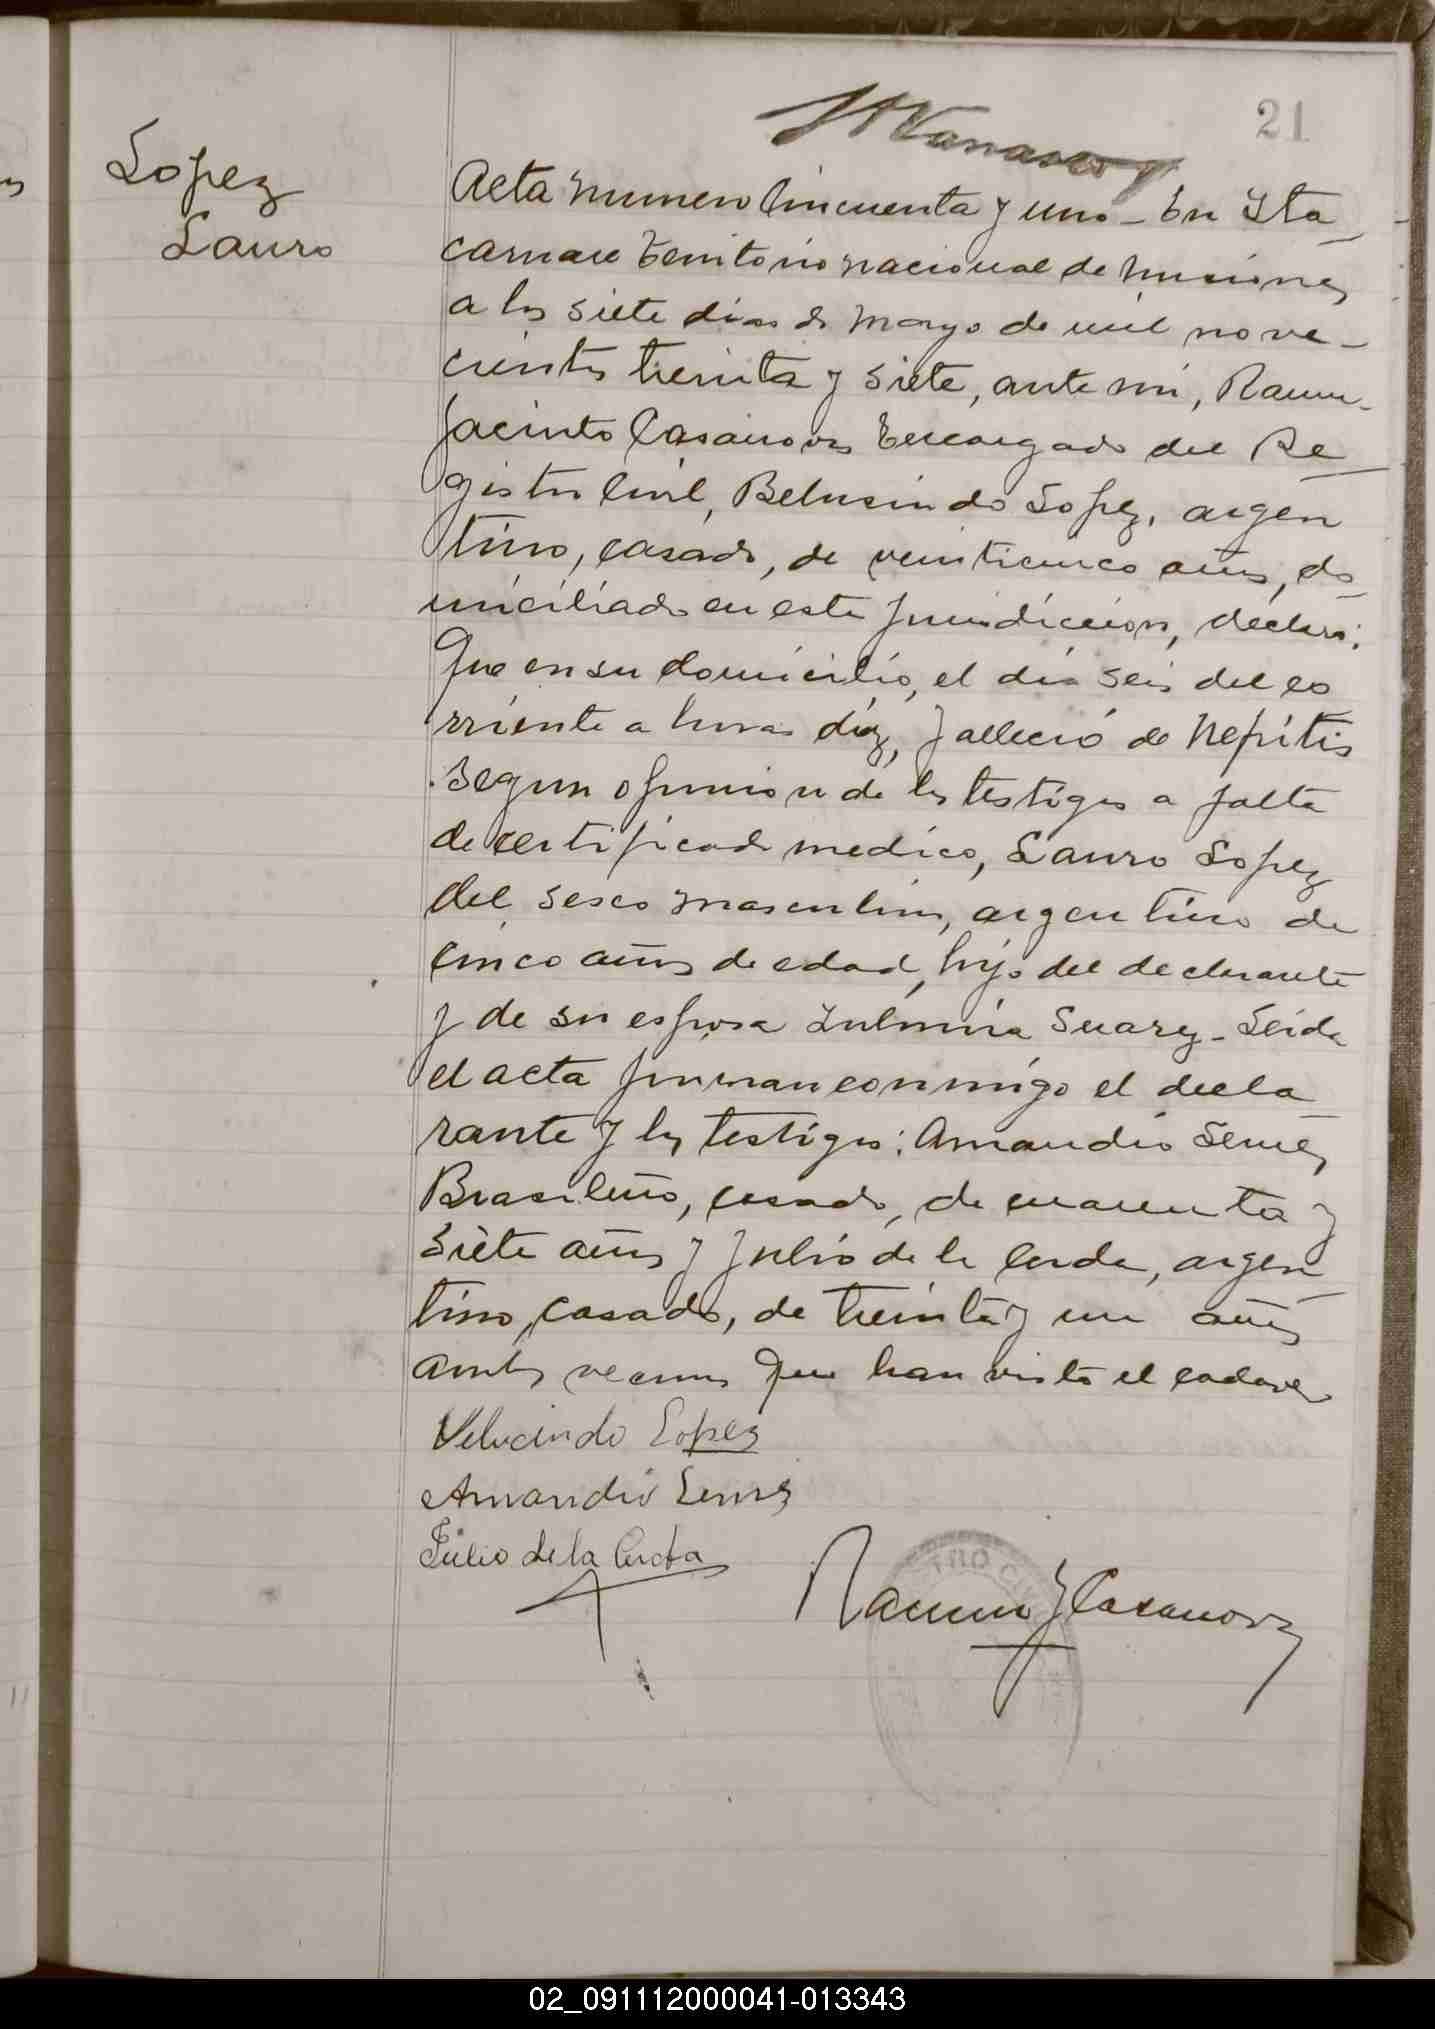 21
Lopez
Lauro
Acta numero Cincuenta y uno - En Ita
caruare territorio nacional de Misiones
a los siete dias de Mayo de mil nove-
cientos treinta y siete, ante mi, Ramon
Jacinto Casanova Encargado del Re
gistro Civil, Belusindo Lopez, argen
tino, casado, de veinticinco años, do
miciliado en esta Jurisdiccion, declaró:
Que en su domicilio, el dia seis del co
rriente a horas diez, falleció de Nefritis
segun opinion de los testigos a falta
de certificado medico, Lauro Lopez
del sexo masculino, argentino de
cinco años de edad, hijo del declarante
y de su esposa Zulmira Suarez - Leida
el acta firman conmigo el decla
rante y los testigos: Amandio Lemes,
Brasileño, casado, de cuarenta y
siete años y Julio de la Cerda, argen
tino, casado, de treinta y un años
ambos vecinos que han visto el cadaver
Velucindo Lopez
Amandio Lemes
Julio de la Cerda
Ramon J Casanova
02_091112000041-013343